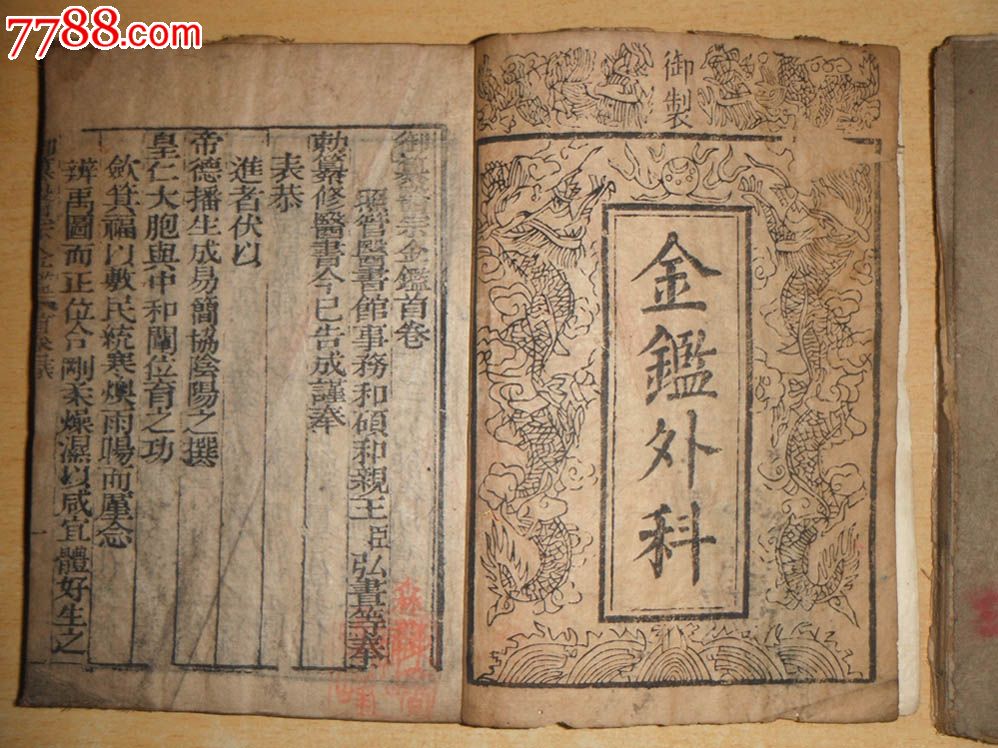 7788.com
中国收藏热线
御製
金鑑外科
御纂醫宗金鑑首卷
總管醫書館事務和碩和親王臣弘晝等奉
勅纂修醫書今已告成謹奉
表恭
進者伏以
帝德播生成易簡協陰陽之撰
皇仁大胞與中和闡位育之功
斂箕福以敷民統寒燠雨暘而廑念
辨禹圖而正位合剛柔燥濕以咸宜體好生之